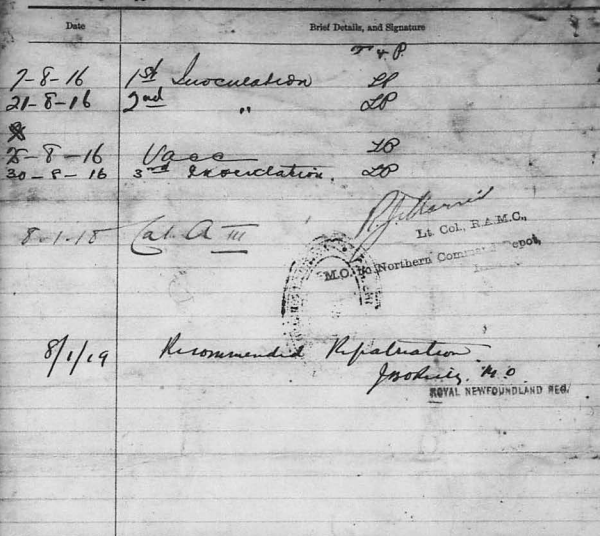 Date Brief Details, and Signature
T & P.
7-8-16 1st Inoculation LP
21-8-16 2nd " LP
8-16 Vacc LP
30-8-16 3rd Inoculation. LP
8-1-18 Cat. A III
Lt Col., R.A.M.C.,
M.O. Northern Command Depot,
8/1/19 Recommended Repatriation.
M.O.
ROYAL NEWFOUNDLAND REG.